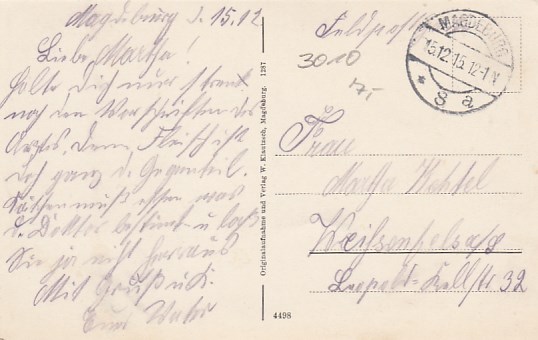 Magdeburg d. 15.12
Liebe Martha!
halte Dich nur streng
nach den Vorschriften des
Arztes. Denn Fleisch ist
doch ganz d. Gegenteil.
muß essen was
d. Doktor bestimt u laß
Sie ja nicht heraus
Mit Gruß u. K.
Euer Vater
Originalaufnahme und Verlag W. Klautzsch, Magdeburg. 1287
4498
Feldpost
3010
7,-
MAGDEBURG
15.12.15. 12-1 N
* 8 a
Frau
Martha
Weissenfels a/S
Leopold-Kellstr 32